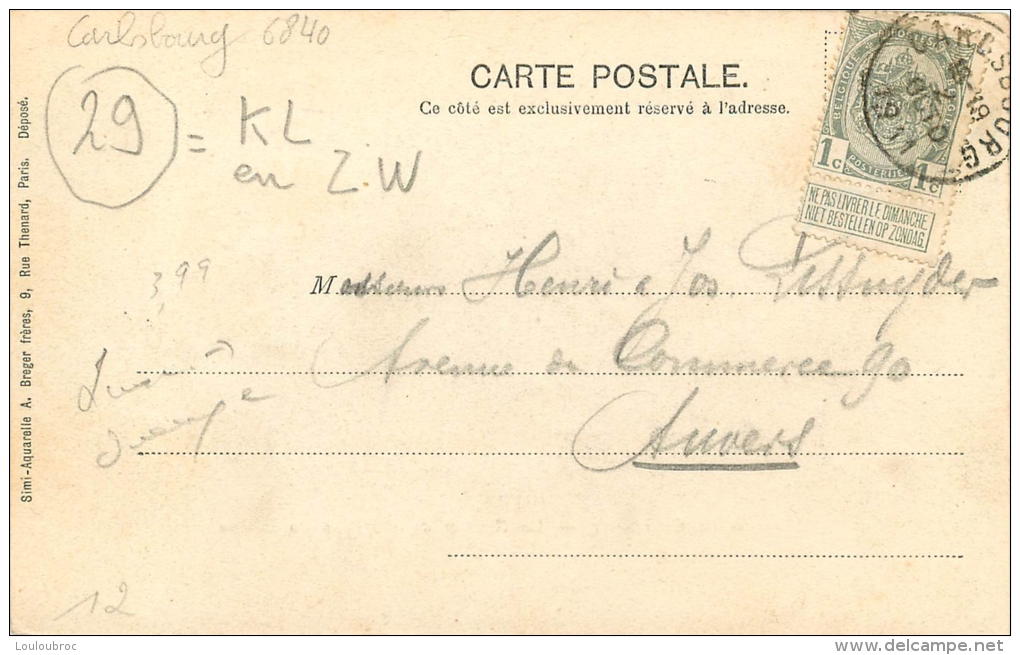 Carlsbourg 6840
CARTE POSTALE.
Ce côté est exclusivement réservé à l'adresse.
29 = KL
en Z.W
BELGIQUE
1c 1c
POSTERIJEN
NE PAS LIVRER LE DIMANCHE
NIET BESTELLEN OP ZONDAG
CARLSBOURG
3,99
Messieurs Henri & Jos.
Avenue du Commerce 90
Anvers
12
Simi-Aquarelle A. Breger frères, 9, Rue Thenard, Paris. Déposé.
Louloubroc
www.delcampe.net